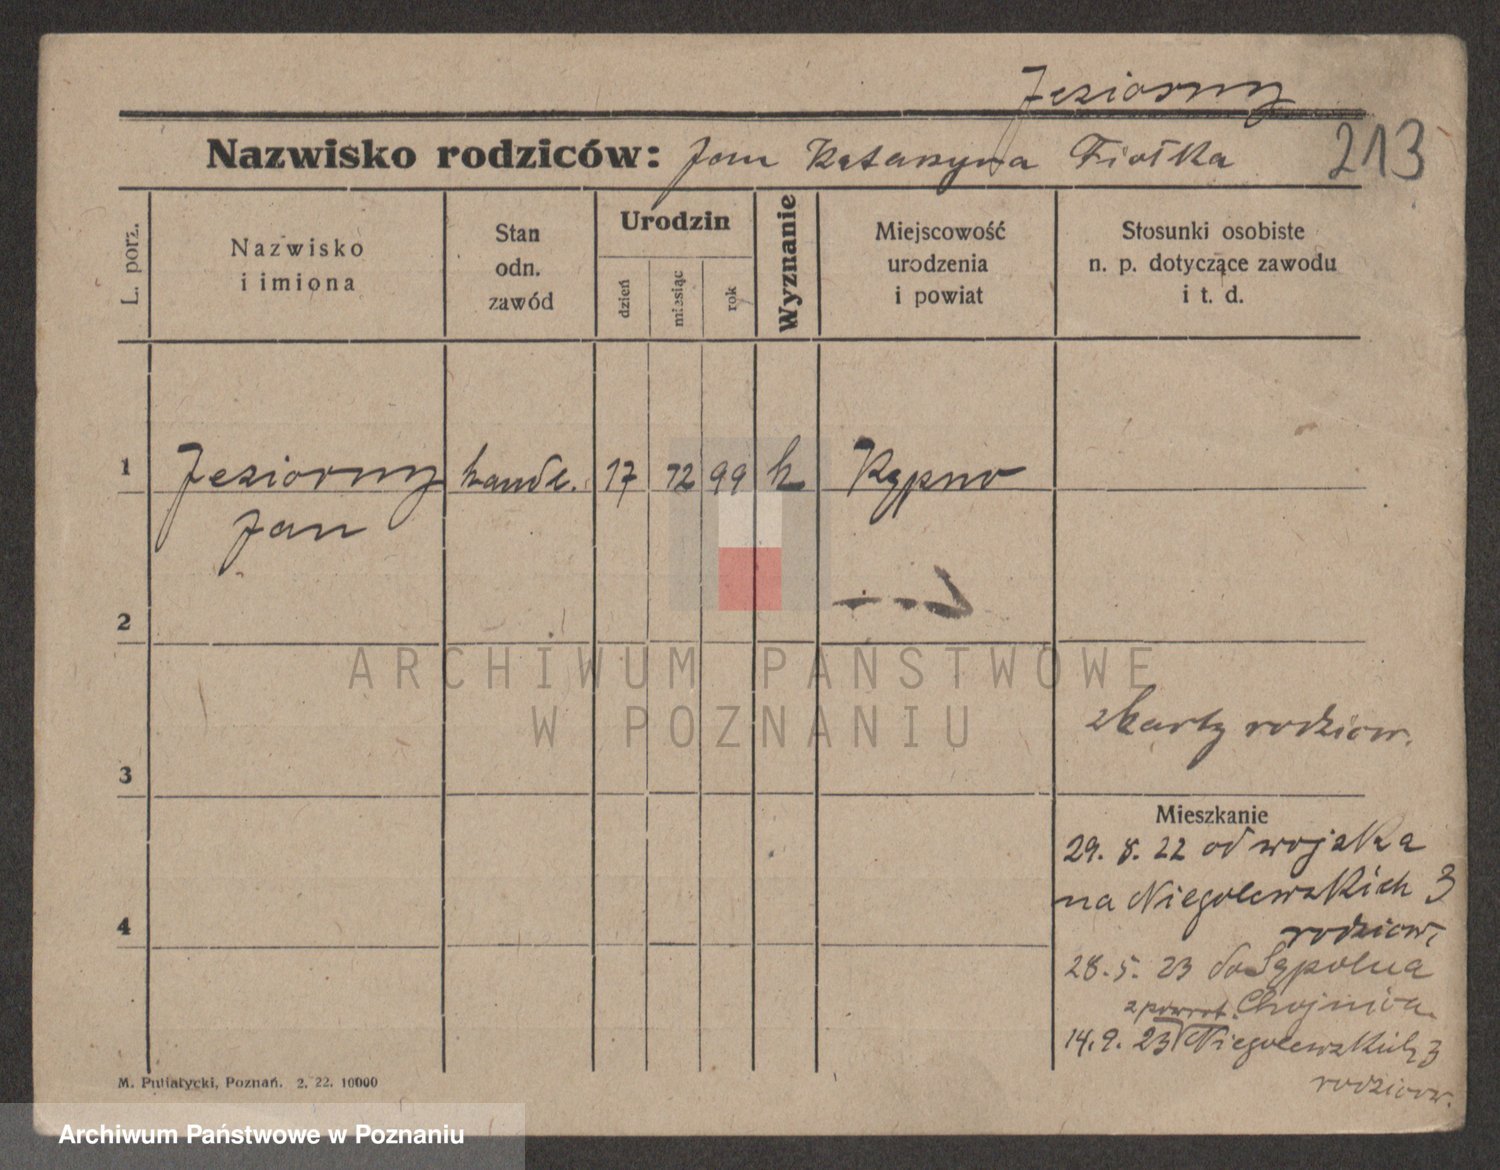 Jeziorny
Nazwisko rodziców: Jan Katarzyna Fiołka 213
L. porz.
Nazwisko
i imiona
Stan
odn.
zawód
Urodzin
dzień
miesiąc
rok
Wyznanie
Miejscowość
urodzenia
i powiat
Stosunki osobiste
n. p. dotyczące zawodu
i t. d.
1 Jeziorny handl. 17 12 99 k Kępno
Jan
2
3
z karty rodziców.
4
Mieszkanie
29. 8. 22 od wojska
na Niegolewskich 3
rodziców
28. 5. 23 do Sępolna
z powrot. Chojnica
14. 9. 23 Niegolewskich 3
rodziców.
M. Putiatycki, Poznań. 2. 22. 10000
ARCHIWUM PAŃSTWOWE
W POZNANIU
Archiwum Państwowe w Poznaniu